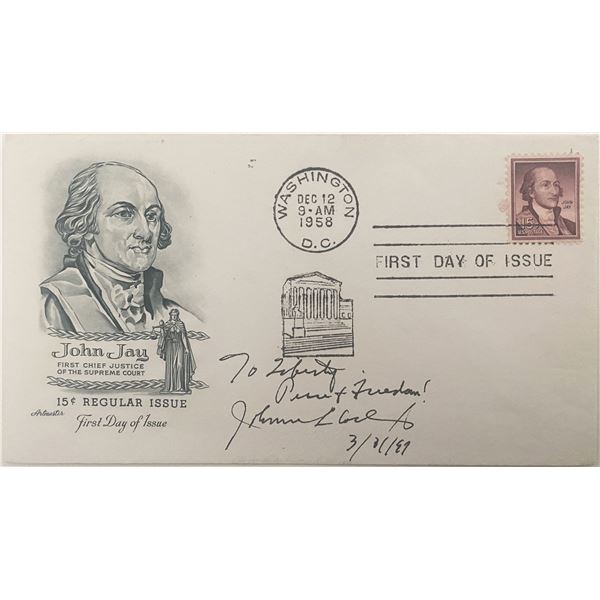 WASHINGTON
DEC 12
9-AM
1958
D.C.
JOHN
JAY
15¢
FIRST DAY OF ISSUE
John Jay
FIRST CHIEF JUSTICE
OF THE SUPREME COURT
15¢ REGULAR ISSUE
Artmaster
First Day of Issue
To Liberty,
Peace & Freedom!